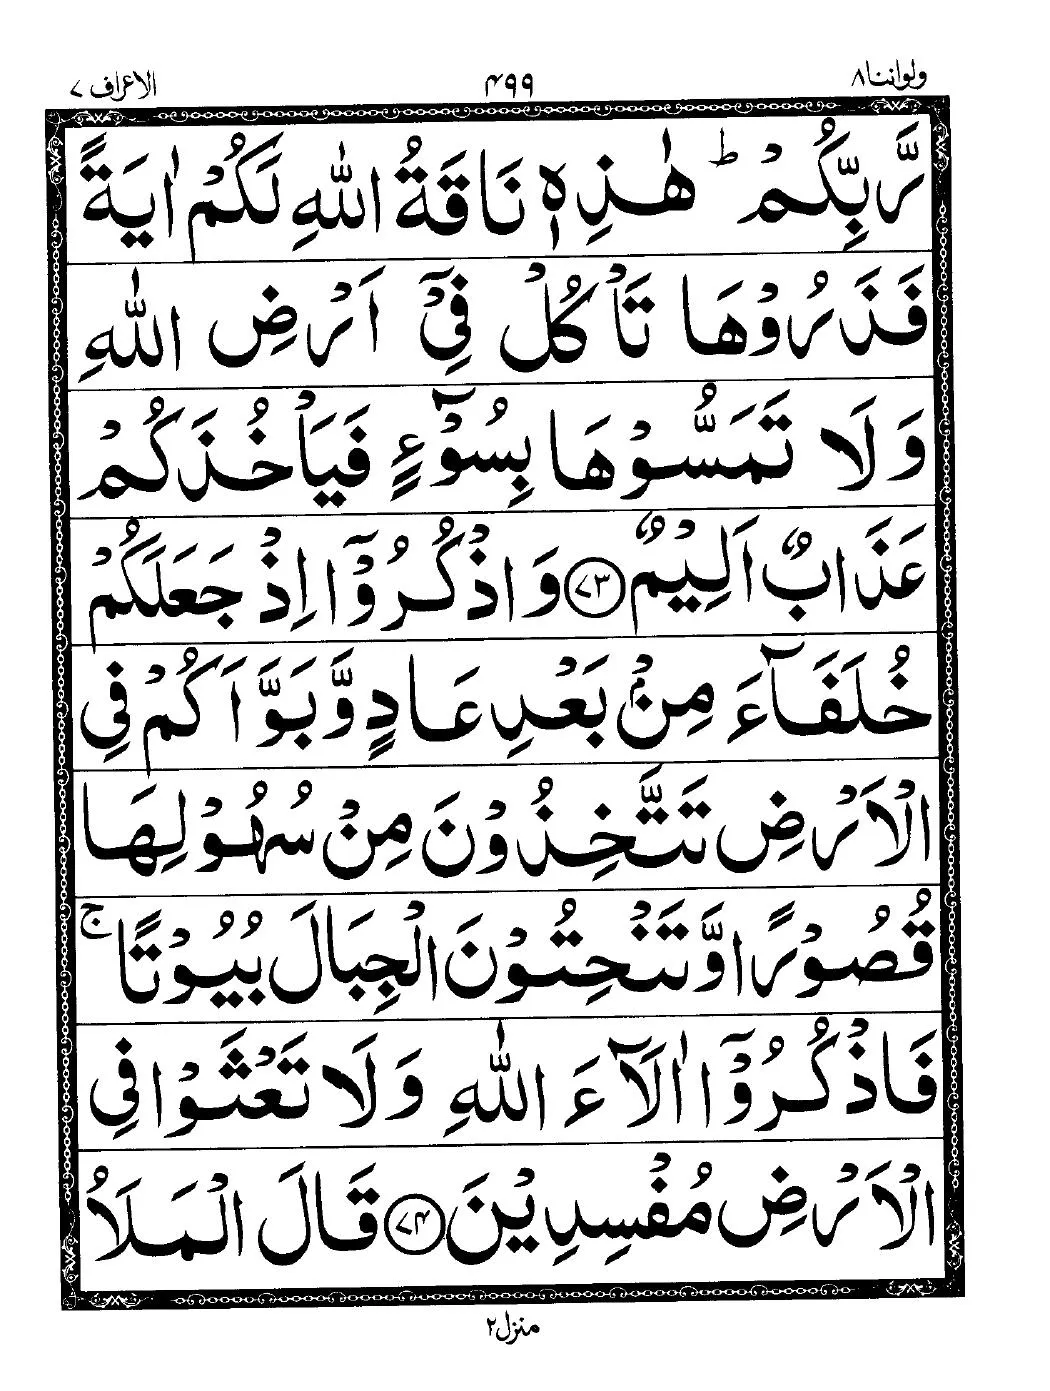 ولواننا ۸ ۴۹۹ الاعراف ۷
رَّبِّكُمْ ؕ هٰذِهٖ نَاقَةُ اللّٰهِ لَكُمْ اٰيَةً
فَذَرُوْهَا تَاْكُلْ فِيْۤ اَرْضِ اللّٰهِ
وَلَا تَمَسُّوْهَا بِسُوْٓءٍ فَيَاْخُذَكُمْ
عَذَابٌ اَلِيْمٌ ﴿۷۳﴾ وَاذْكُرُوْۤا اِذْ جَعَلَكُمْ
خُلَفَآءَ مِنْۢ بَعْدِ عَادٍ وَّبَوَّاَكُمْ فِي
الْاَرْضِ تَتَّخِذُوْنَ مِنْ سُهُوْلِهَا
قُصُوْرًا وَّتَنْحِتُوْنَ الْجِبَالَ بُيُوْتًا ۚ
فَاذْكُرُوْۤا اٰلَآءَ اللّٰهِ وَلَا تَعْثَوْا فِي
الْاَرْضِ مُفْسِدِيْنَ ﴿۷۴﴾ قَالَ الْمَلَاُ
منزل ۲